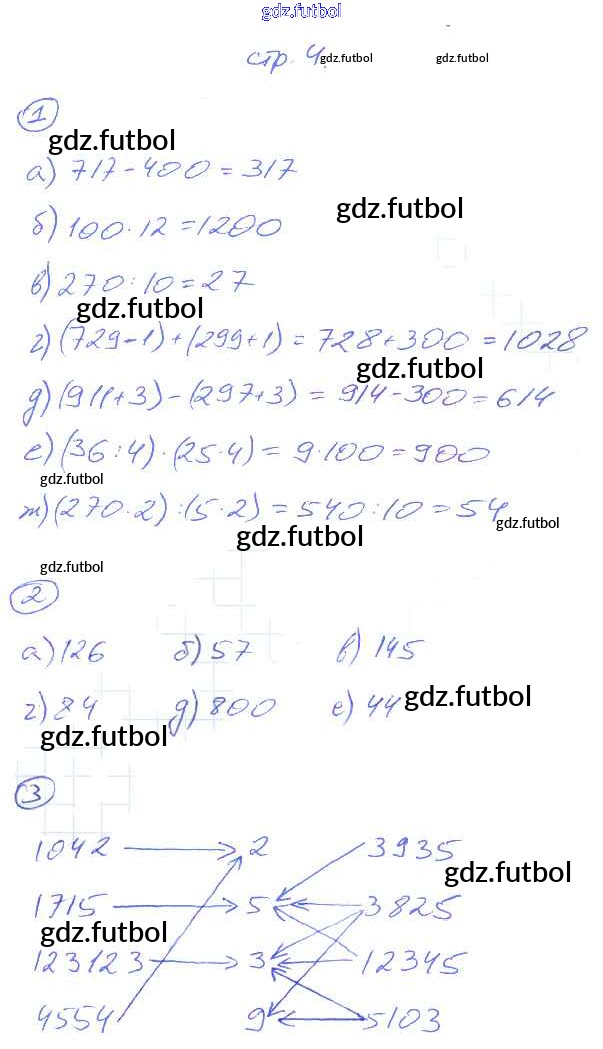 gdz.futbol
стр. 4. gdz.futbol gdz.futbol
1
gdz.futbol
а) 717 - 400 = 317
gdz.futbol
б) 100 · 12 = 1200
в) 270 : 10 = 27
gdz.futbol
г) (729 - 1) + (299 + 1) = 728 + 300 = 1028
gdz.futbol
д) (911 + 3) - (297 + 3) = 914 - 300 = 614
е) (36 : 4) · (25 · 4) = 9 · 100 = 900
gdz.futbol
ж) (270 · 2) : (5 · 2) = 540 : 10 = 54
gdz.futbol
gdz.futbol
gdz.futbol
2
а) 126 б) 57 в) 145
г) 84 д) 800 е) 44 gdz.futbol
gdz.futbol
3
1042 2 3935
gdz.futbol
1715 5 3825
gdz.futbol
123123 3 12345
4554 9 5103